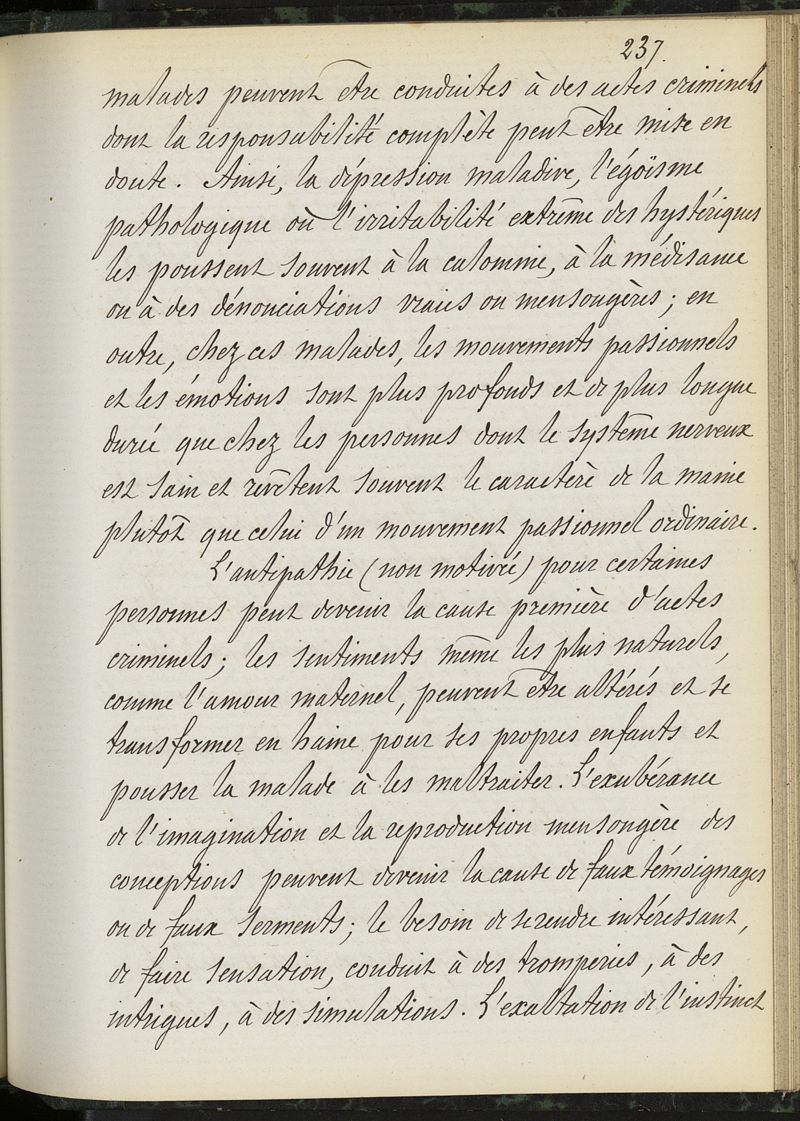 237.
malades peuvent être conduites à des actes criminels
dont la responsabilité complète peut être mise en
doute. Ainsi, la dépression maladive, l'égoïsme
pathologique où l'irritabilité extrême des hystériques
les poussent souvent à la calomnie, à la médisance
ou à des dénonciations vraies ou mensongères; en
outre, chez ces malades, les mouvements passionnels
et les émotions sont plus profonds et de plus longue
durée que chez les personnes dont le système nerveux
est sain et revêtent souvent le caractère de la manie
plutôt que celui d'un mouvement passionnel ordinaire.
L'antipathie (non motivée) pour certaines
personnes peut devenir la cause première d'actes
criminels; les sentiments même les plus naturels,
comme l'amour maternel, peuvent être altérés et se
transformer en haine pour ses propres enfants et
pousser la malade à les maltraiter. L'exubérance
de l'imagination et la reproduction mensongère des
conceptions peuvent devenir la cause de faux témoignages
ou de faux serments; le besoin de se rendre intéressant,
de faire sensation, conduit à des tromperies, à des
intrigues, à des simulations. L'exaltation de l'instinct